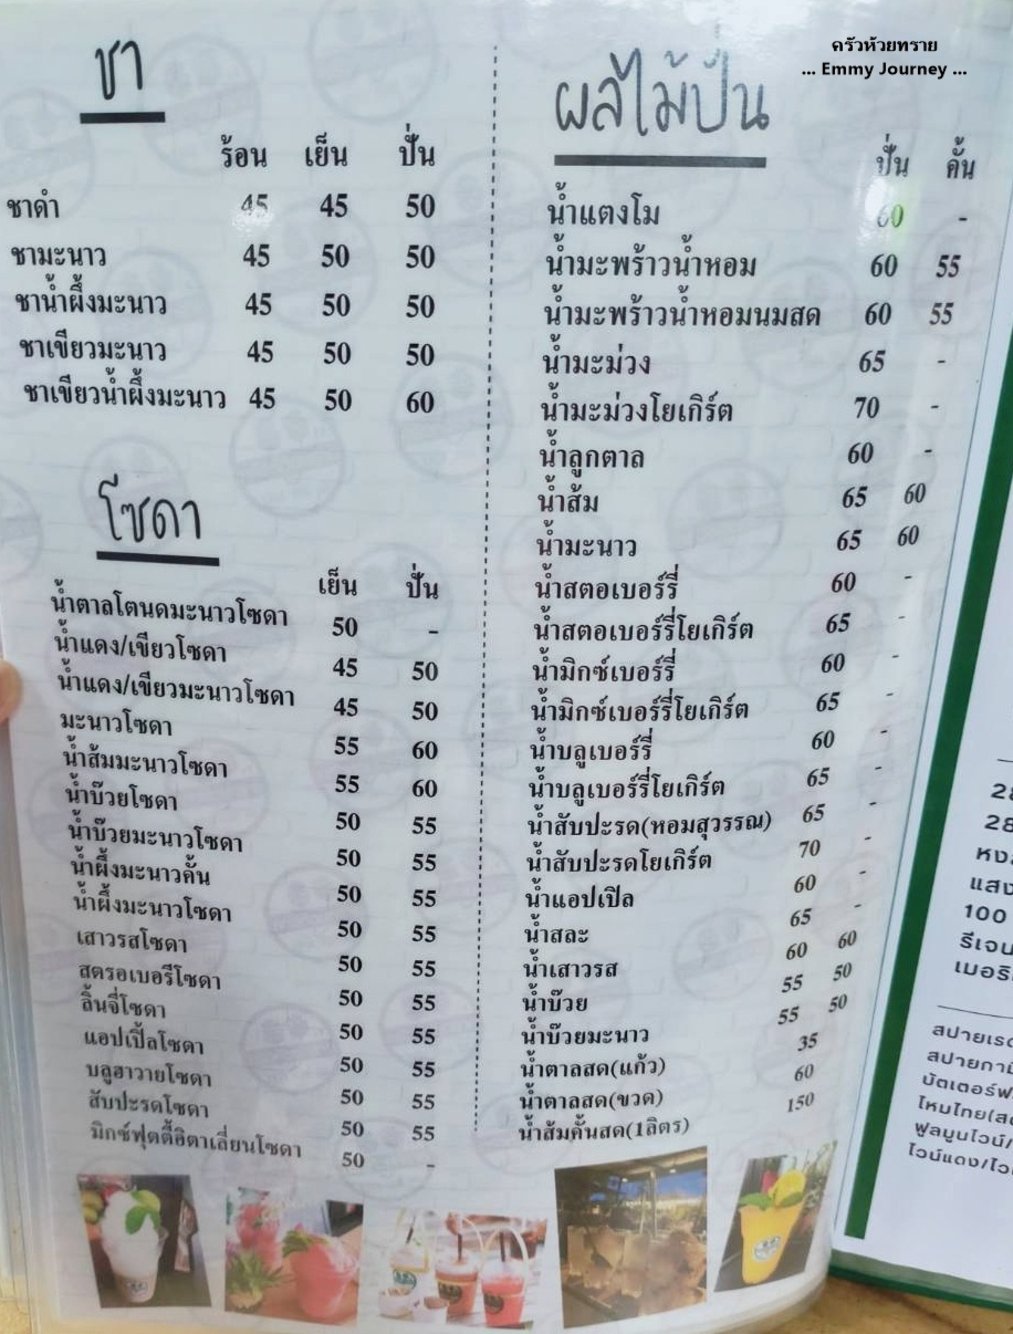 ครัวห้วยทราย
... Emmy Journey ...
ชา
ร้อน เย็น ปั่น
ชาดำ 45 45 50
ชามะนาว 45 50 50
ชาน้ำผึ้งมะนาว 45 50 50
ชาเขียวมะนาว 45 50 50
ชาเขียวน้ำผึ้งมะนาว 45 50 60
โซดา
เย็น ปั่น
น้ำตาลโตนดมะนาวโซดา 50 -
น้ำแดง/เขียวโซดา 45 50
น้ำแดง/เขียวมะนาวโซดา 45 50
มะนาวโซดา 55 60
น้ำส้มมะนาวโซดา 55 60
น้ำบ๊วยโซดา 50 55
น้ำบ๊วยมะนาวโซดา 50 55
น้ำผึ้งมะนาวคั้น 50 55
น้ำผึ้งมะนาวโซดา 50 55
เสาวรสโซดา 50 55
สตรอเบอรีโซดา 50 55
ลิ้นจี่โซดา 50 55
แอปเปิ้ลโซดา 50 55
บลูฮาวายโซดา 50 55
สับปะรดโซดา 50 55
มิกซ์ฟุตตี้อิตาเลี่ยนโซดา 50 -
ผลไม้ปั่น
ปั่น คั้น
น้ำแตงโม 60 -
น้ำมะพร้าวน้ำหอม 60 55
น้ำมะพร้าวน้ำหอมนมสด 60 55
น้ำมะม่วง 65 -
น้ำมะม่วงโยเกิร์ต 70 -
น้ำลูกตาล 60 -
น้ำส้ม 65 60
น้ำมะนาว 65 60
น้ำสตอเบอร์รี่ 60 -
น้ำสตอเบอร์รี่โยเกิร์ต 65 -
น้ำมิกซ์เบอร์รี่ 60 -
น้ำมิกซ์เบอร์รี่โยเกิร์ต 65 -
น้ำบลูเบอร์รี่ 60 -
น้ำบลูเบอร์รี่โยเกิร์ต 65 -
น้ำสับปะรด(หอมสุวรรณ) 65 -
น้ำสับปะรดโยเกิร์ต 70 -
น้ำแอปเปิล 60 -
น้ำสละ 65 -
น้ำเสาวรส 60 60
น้ำบ๊วย 55 50
น้ำบ๊วยมะนาว 55 50
น้ำตาลสด(แก้ว) 35
น้ำตาลสด(ขวด) 60
น้ำส้มคั้นสด(1ลิตร) 150
28
หง
แสง
100
รีเจน
เมอริ
สปายเรด
สปายกา
บัตเตอร์ฟ
ไหมไทย(ส
ฟูลมูนไวน์/
ไวน์แดง/ไว